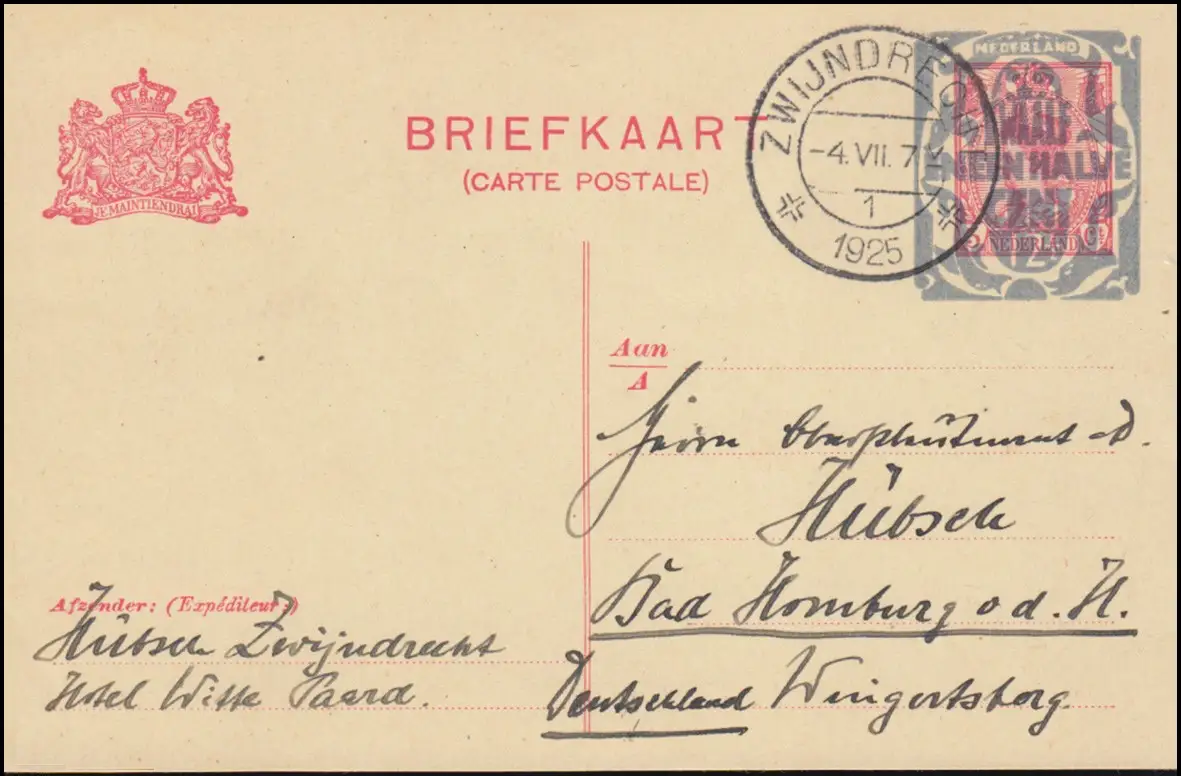 JE MAINTIENDRAI
BRIEFKAART
(CARTE POSTALE)
ZWIJNDRECHT
-4.VII.7
1
1925
NEDERLAND
HALVE
CENT
NEDERLAND
12½
Aan
A
Herrn Oberstleutnant a.D.
Hübsch
Bad Homburg v. d. H.
Deutschland Wingertsberg
Afzender: (Expéditeur:)
Hübsch Zwijndrecht
Hotel Witte Paard.